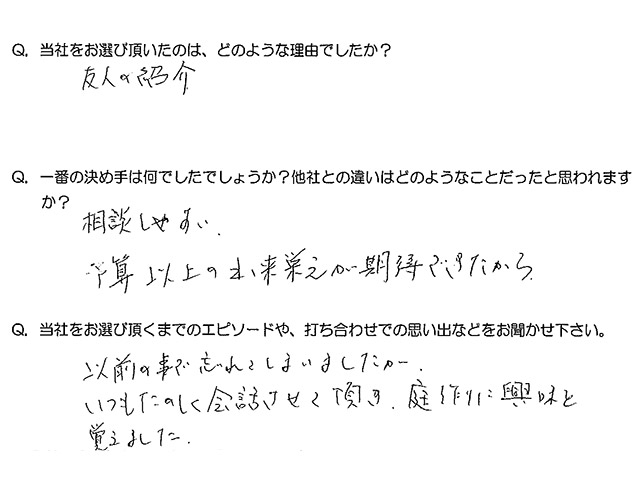 Q. 当社をお選び頂いたのは、どのような理由でしたか？
友人の紹介
Q. 一番の決め手は何でしたでしょうか？他社との違いはどのようなことだったと思われます
か？
相談しやすい.
予算以上の出来栄えが期待できたから
Q. 当社をお選び頂くまでのエピソードや、打ち合わせでの思い出などをお聞かせ下さい。
以前の事で忘れてしまいましたが.
いつもたのしく会話させて頂き、庭作りに興味を
覚えました.